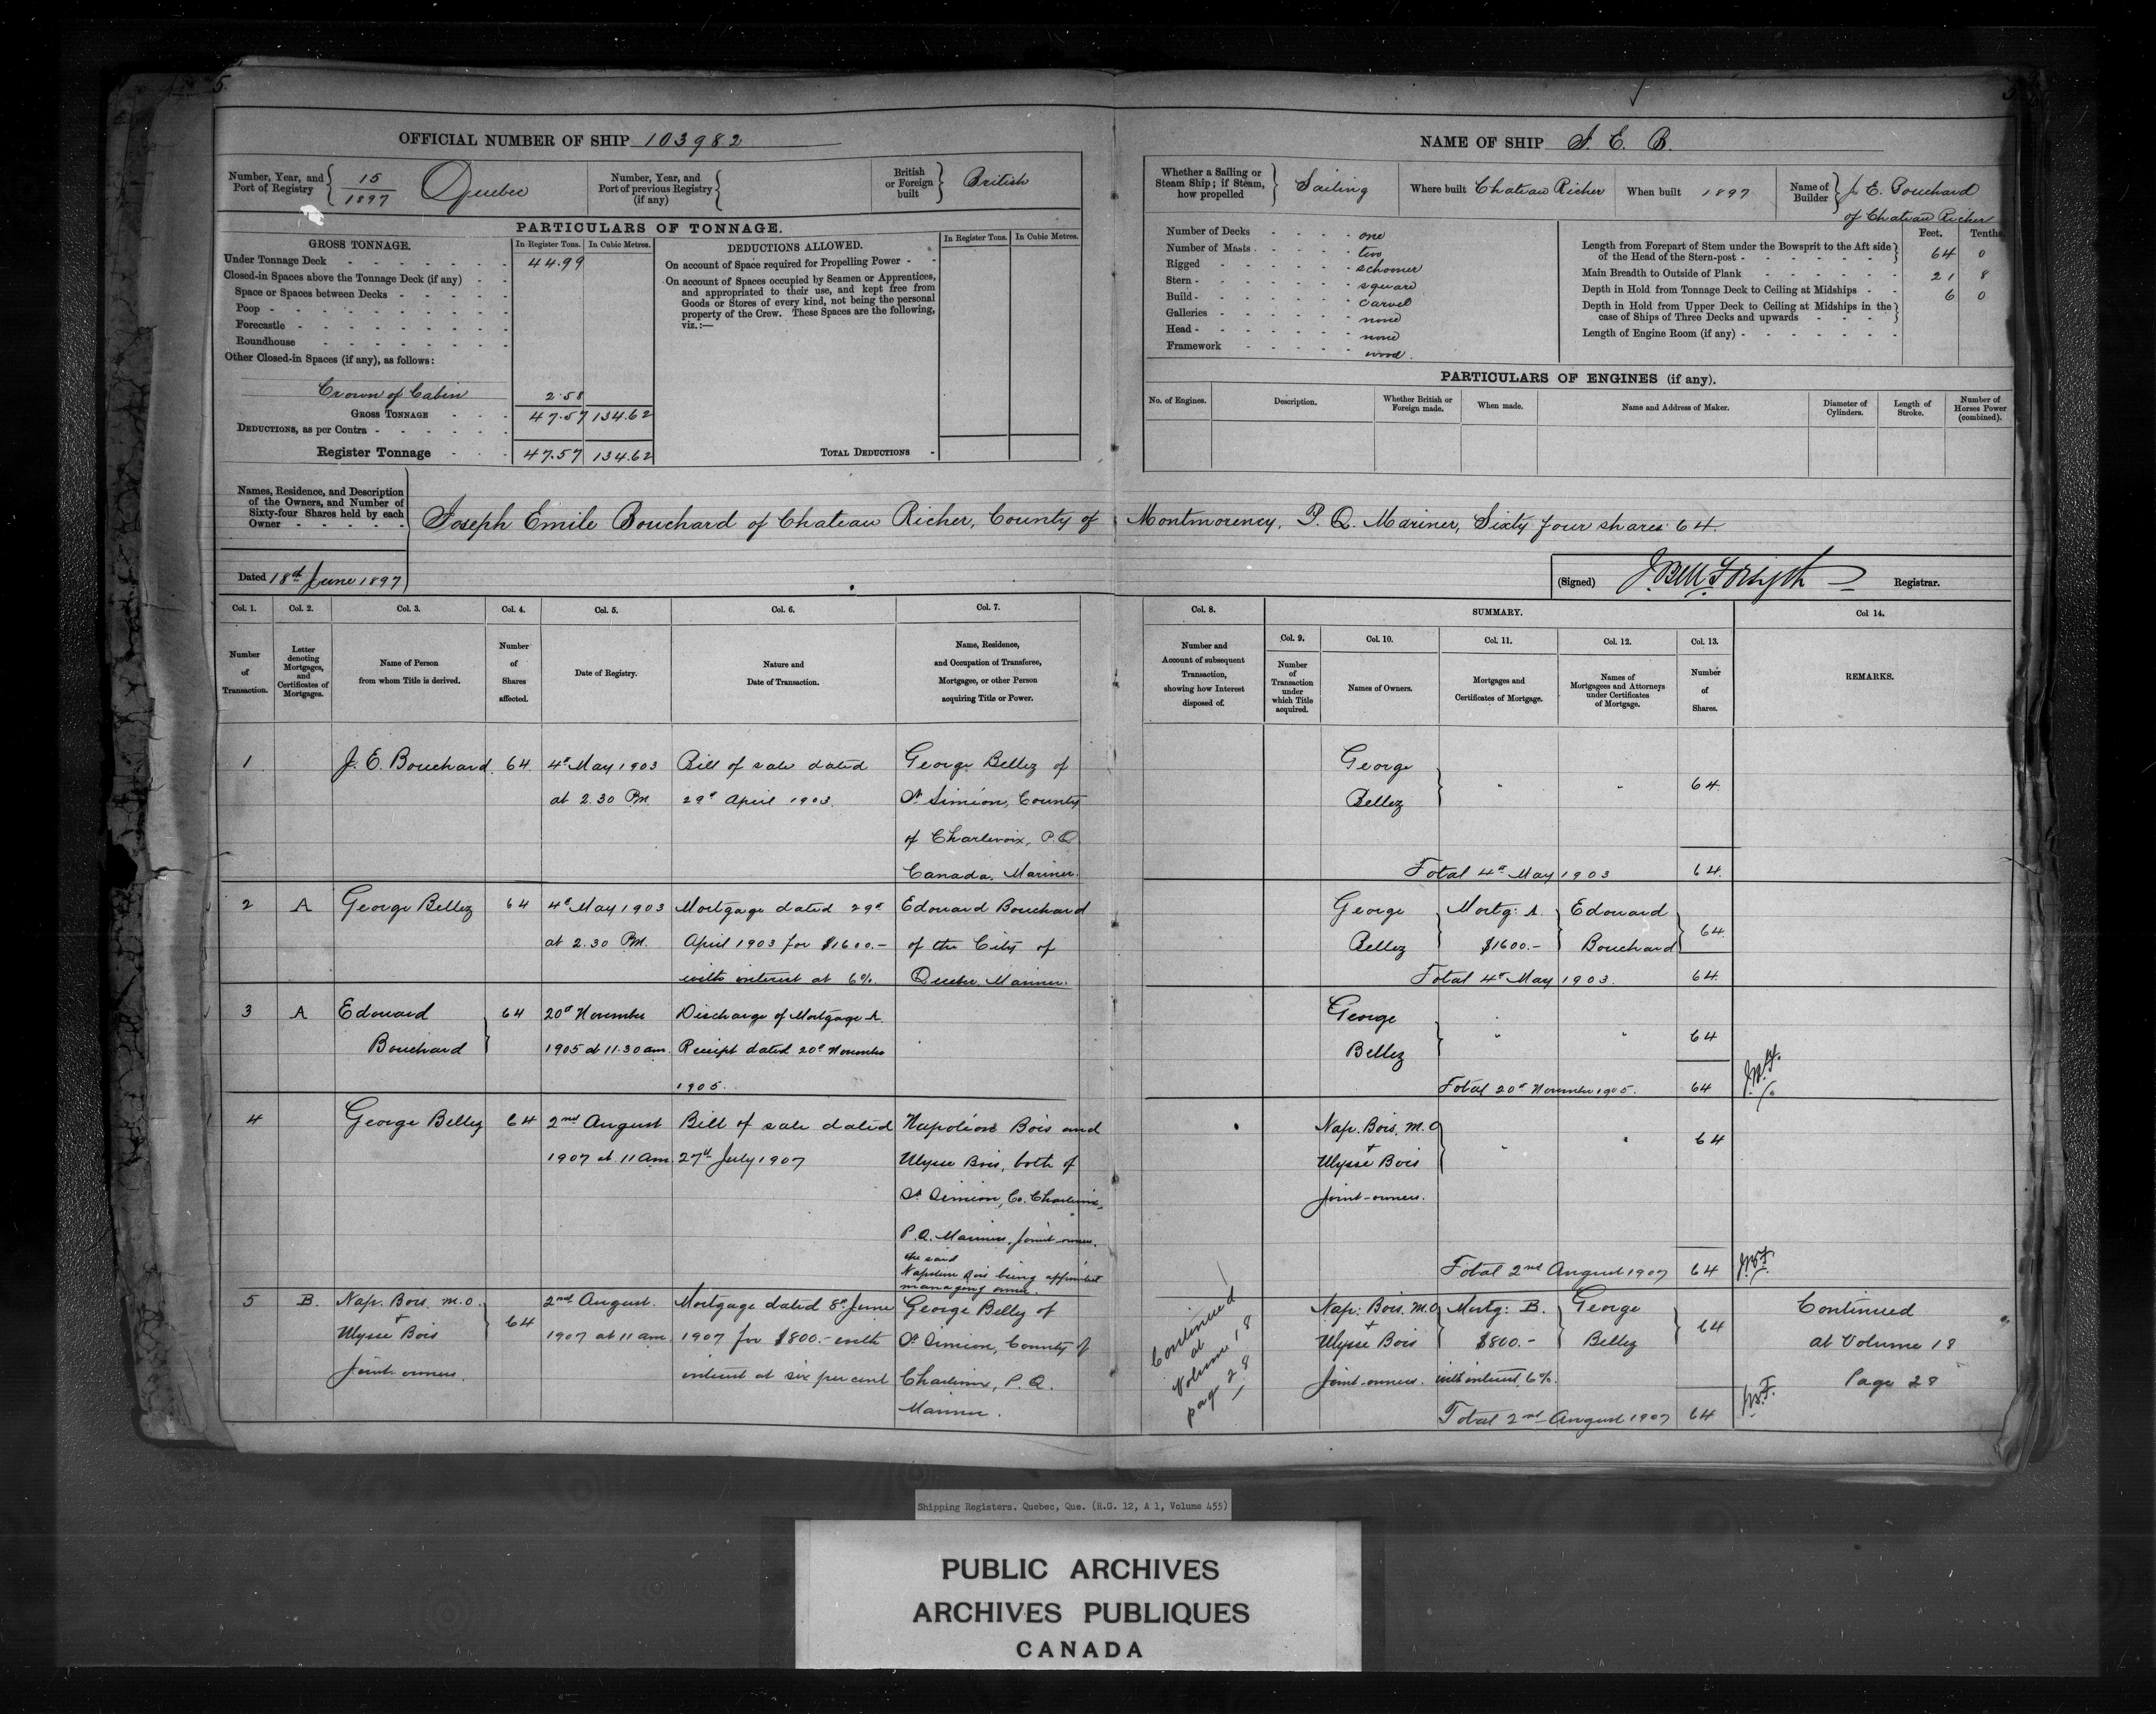 5.
OFFICIAL NUMBER OF SHIP 103982
Number, Year, and Port of Registry 15/1897 Quebec
Number, Year, and Port of previous Registry (if any)
British or Foreign built British
PARTICULARS OF TONNAGE.
GROSS TONNAGE. In Register Tons. In Cubic Metres.
Under Tonnage Deck 44.99
Closed-in Spaces above the Tonnage Deck (if any)
Space or Spaces between Decks
Poop
Forecastle
Roundhouse
Other Closed-in Spaces (if any), as follows:
Crown of Cabin 2.58
GROSS TONNAGE 47.57 134.62
DEDUCTIONS, as per Contra
Register Tonnage 47.57 134.62
DEDUCTIONS ALLOWED. In Register Tons. In Cubic Metres.
On account of Space required for Propelling Power
On account of Spaces occupied by Seamen or Apprentices,
and appropriated to their use, and kept free from
Goods or Stores of every kind, not being the personal
property of the Crew. These Spaces are the following,
viz.:—
TOTAL DEDUCTIONS
NAME OF SHIP J. E. B.
Whether a Sailing or Steam Ship; if Steam, how propelled Sailing
Where built Chateau Richer
When built 1897
Name of Builder J. E. Bouchard
of Chateau Richer
Number of Decks one
Number of Masts two
Rigged schooner
Stern square
Build carvel
Galleries none
Head none
Framework wood.
Feet. Tenths.
Length from Forepart of Stem under the Bowsprit to the Aft side of the Head of the Stern-post 64 0
Main Breadth to Outside of Plank 21 8
Depth in Hold from Tonnage Deck to Ceiling at Midships 6 0
Depth in Hold from Upper Deck to Ceiling at Midships in the case of Ships of Three Decks and upwards
Length of Engine Room (if any)
PARTICULARS OF ENGINES (if any).
No. of Engines. Description. Whether British or Foreign made. When made. Name and Address of Maker. Diameter of Cylinders. Length of Stroke. Number of Horses Power (combined).
Names, Residence, and Description
of the Owners, and Number of
Sixty-four Shares held by each
Owner
Joseph Emile Bouchard of Chateau Richer, County of Montmorency, P. Q. Mariner, Sixty four shares 64.
Dated 18th June 1897
(Signed) J. Bell Forsyth Registrar.
Col. 1. Col. 2. Col. 3. Col. 4. Col. 5. Col. 6. Col. 7.
Number of Transaction.
Letter denoting Mortgages, and Certificates of Mortgages.
Name of Person from whom Title is derived.
Number of Shares affected.
Date of Registry.
Nature and Date of Transaction.
Name, Residence, and Occupation of Transferee, Mortgagee, or other Person acquiring Title or Power.
Col. 8. SUMMARY. Col 14.
Col. 9. Col. 10. Col. 11. Col. 12. Col. 13.
Number and Account of subsequent Transaction, showing how Interest disposed of.
Number of Transaction under which Title acquired.
Names of Owners.
Mortgages and Certificates of Mortgage.
Names of Mortgagees and Attorneys under Certificates of Mortgage.
Number of Shares.
REMARKS.
1 J. E. Bouchard. 64 4th May 1903 Bill of sale dated George Bellez of
at 2.30 Pm. 29th April 1903. St Siméon, County
of Charlevoix, P.Q
Canada. Mariner.
George
Bellez " " 64.
Total 4th May 1903 64.
2 A George Bellez 64 4th May 1903 Mortgage dated 29th Edouard Bouchard
at 2.30 Pm. April 1903 for $1600.- of the City of
with interest at 6%. Quebec. Mariner.
George Mortg: A. Edouard
Bellez $1600.- Bouchard 64
Total 4th May 1903. 64.
3 A Edouard 64 20th November Discharge of Mortgage A.
Bouchard 1905 at 11.30 am. Receipt dated 20th November
1905.
George
Bellez " " 64
Total 20th November 1905. 64
4 George Bellez 64 2nd August Bill of sale dated Napoléon Bois and
1907 at 11 am. 27th July 1907 Ulysse Bois, both of
St Simeon, Co. Charlevoix,
P.Q. Mariners, Joint owners.
the said
Napoleon Bois being appointed
managing owner.
Nap. Bois. M.O
+
Ulysse Bois " " 64
Joint-owners.
Total 2nd August 1907 64 J.B.F.
5 B. Nap. Bois. m.o. 64 2nd August. Mortgage dated 8th June George Bellez of
+
Ulysse Bois 1907 at 11 am 1907 for $800.- with St Simeon, County of
Joint owners. interest at six per cent Charlevoix, P.Q.
Mariner.
Continued
at
Volume 18
page 28
Nap: Bois. M.O Mortg: B. George
+
Ulysse Bois $800.- Bellez 64
Joint-owners. with interest 6%.
Total 2nd August 1907 64 J.B.F.
Continued
at Volume 18
Page 28
Shipping Registers. Quebec, Que. (R.G. 12, A 1, Volume 455)
PUBLIC ARCHIVES
ARCHIVES PUBLIQUES
CANADA